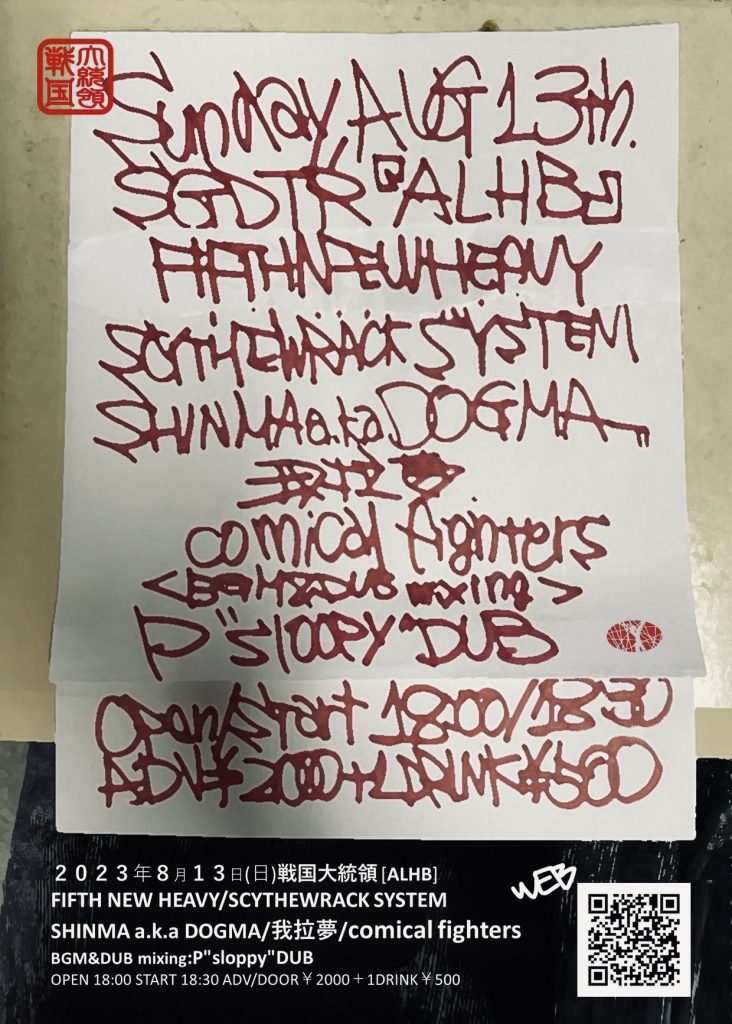 戦国大統領
Sunday AUG 13th.
SGDTR『ALHB』
FIFTH NEW HEAVY
SCYTHEWRACK SYSTEM
SHINMA a.k.a DOGMA
我拉
comical fighters
<BGM&DUB mixing>
P"sloppy"DUB
Open/Start 18:00/18:30
ADV¥2000+1DRINK¥500
2023年8月13日(日)戦国大統領[ALHB]
FIFTH NEW HEAVY/SCYTHEWRACK SYSTEM
WEB
SHINMA a.k.a DOGMA/我拉夢/comical fighters
BGM&DUB mixing:P"sloppy"DUB
OPEN 18:00 START 18:30 ADV/DOOR¥2000+1DRINK¥500